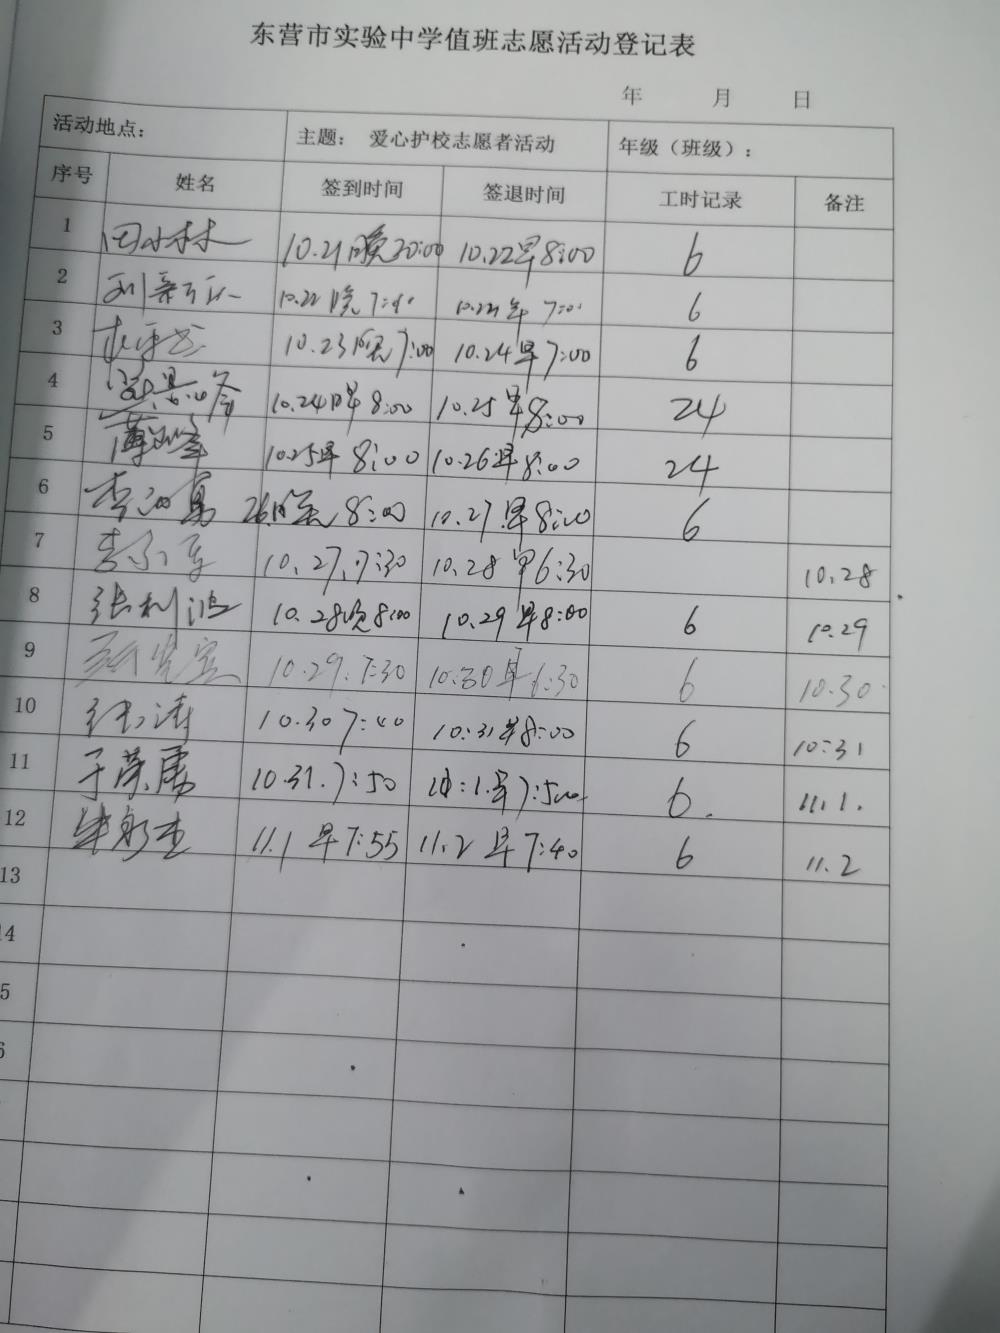 东营市实验中学值班志愿活动登记表
年 月 日
活动地点： 主题： 爱心护校志愿者活动 年级（班级）：
序号 姓名 签到时间 签退时间 工时记录 备注
1 田小林 10.21晚20:00 10.22早8:00 6
2 10.22晚7:00 7:00 6
3 10.23晚7:00 10.24早7:00 6
4 10.24早8:00 10.25早8:00 24
5 10.25早8:00 10.26早8:00 24
6 26晚8:00 10.27早8:00 6
7 10.27.7:30 10.28早6:30 10.28
8 张利波 10.28晚8:00 10.29早8:00 6 10.29
9 10.29.7:30 10.30早6:30 6 10.30
10 10.30 7:40 10.31早8:00 6 10:31
11 于荣勇 10.31.7:50 6. 11.1.
12 11.1早7:55 11.2早7:40 6 11.2
13
4
5
6